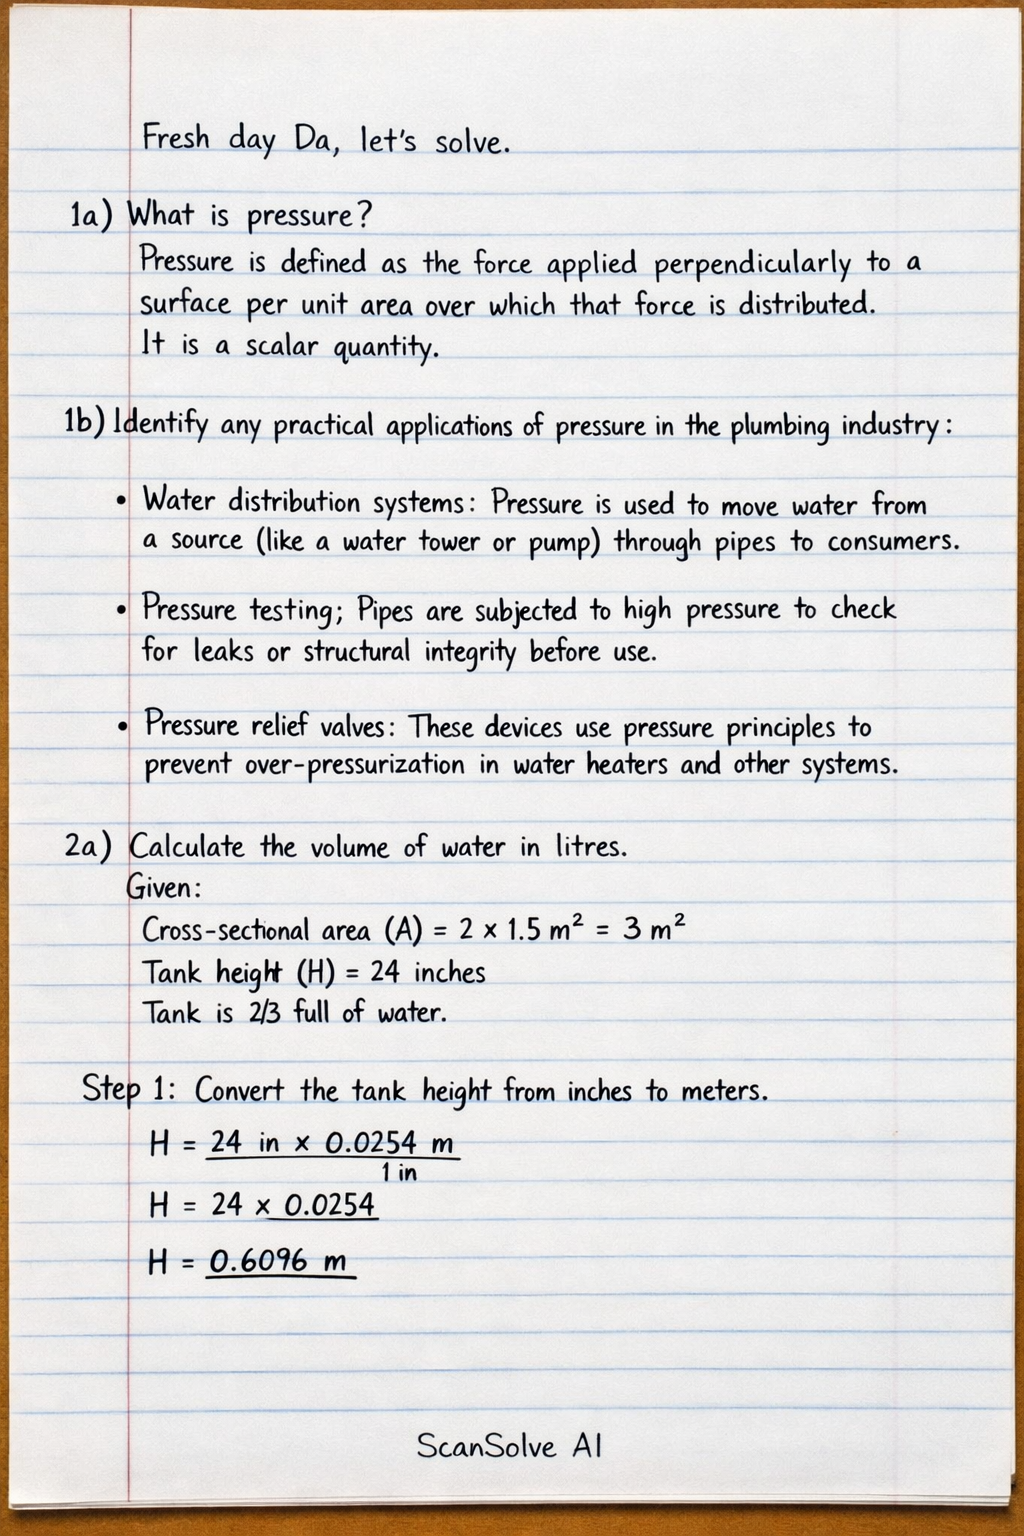 Fresh day Da, let's solve.
1a) What is pressure?
Pressure is defined as the force applied perpendicularly to a
surface per unit area over which that force is distributed.
It is a scalar quantity.
1b) Identify any practical applications of pressure in the plumbing industry:
• Water distribution systems: Pressure is used to move water from
a source (like a water tower or pump) through pipes to consumers.
• Pressure testing; Pipes are subjected to high pressure to check
for leaks or structural integrity before use.
• Pressure relief valves: These devices use pressure principles to
prevent over-pressurization in water heaters and other systems.
2a) Calculate the volume of water in litres.
Given:
Cross-sectional area (A) = 2 × 1.5 m² = 3 m²
Tank height (H) = 24 inches
Tank is 2/3 full of water.
Step 1: Convert the tank height from inches to meters.
H = 24 in × 0.0254 m
1 in
H = 24 × 0.0254
H = 0.6096 m
ScanSolve AI